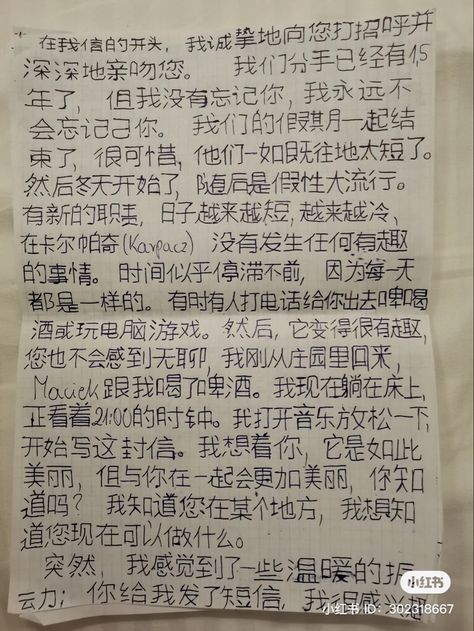 在我信的开头，我诚挚地向您打招呼并
深深地亲吻您。 我们分手已经有1,5
年了，但我没有忘记你，我永远不
会忘记己你。 我们的假期一起结
束了，很可惜，他们一如既往地太短了。
然后冬天开始了，随后是假性大流行。
有新的职责，日子越来越短，越来越冷、
在卡尔帕奇(Karpacz) 没有发生任何有趣
的事情。 时间似乎停滞不前，因为每一天
都是一样的。 有时有人打电话给你出去啤喝
酒或玩电脑游戏。 然后，它变得很有趣，
您也不会感到无聊，我刚从庄园里回来，
Maciek跟我喝了啤酒。我现在躺在床上，
正看着21:00的时钟。我打开音乐放松一下，
开始写这封信。我想着你，它是如此
美丽，但与你在一起会更加美丽，你知
道吗？ 我知道您在某个地方，我想知
道您现在可以做什么。
突然，我感觉到了一些温暖的振
动力；你给我发了短信，我很感兴趣
小红书
小红书 ID：302318667